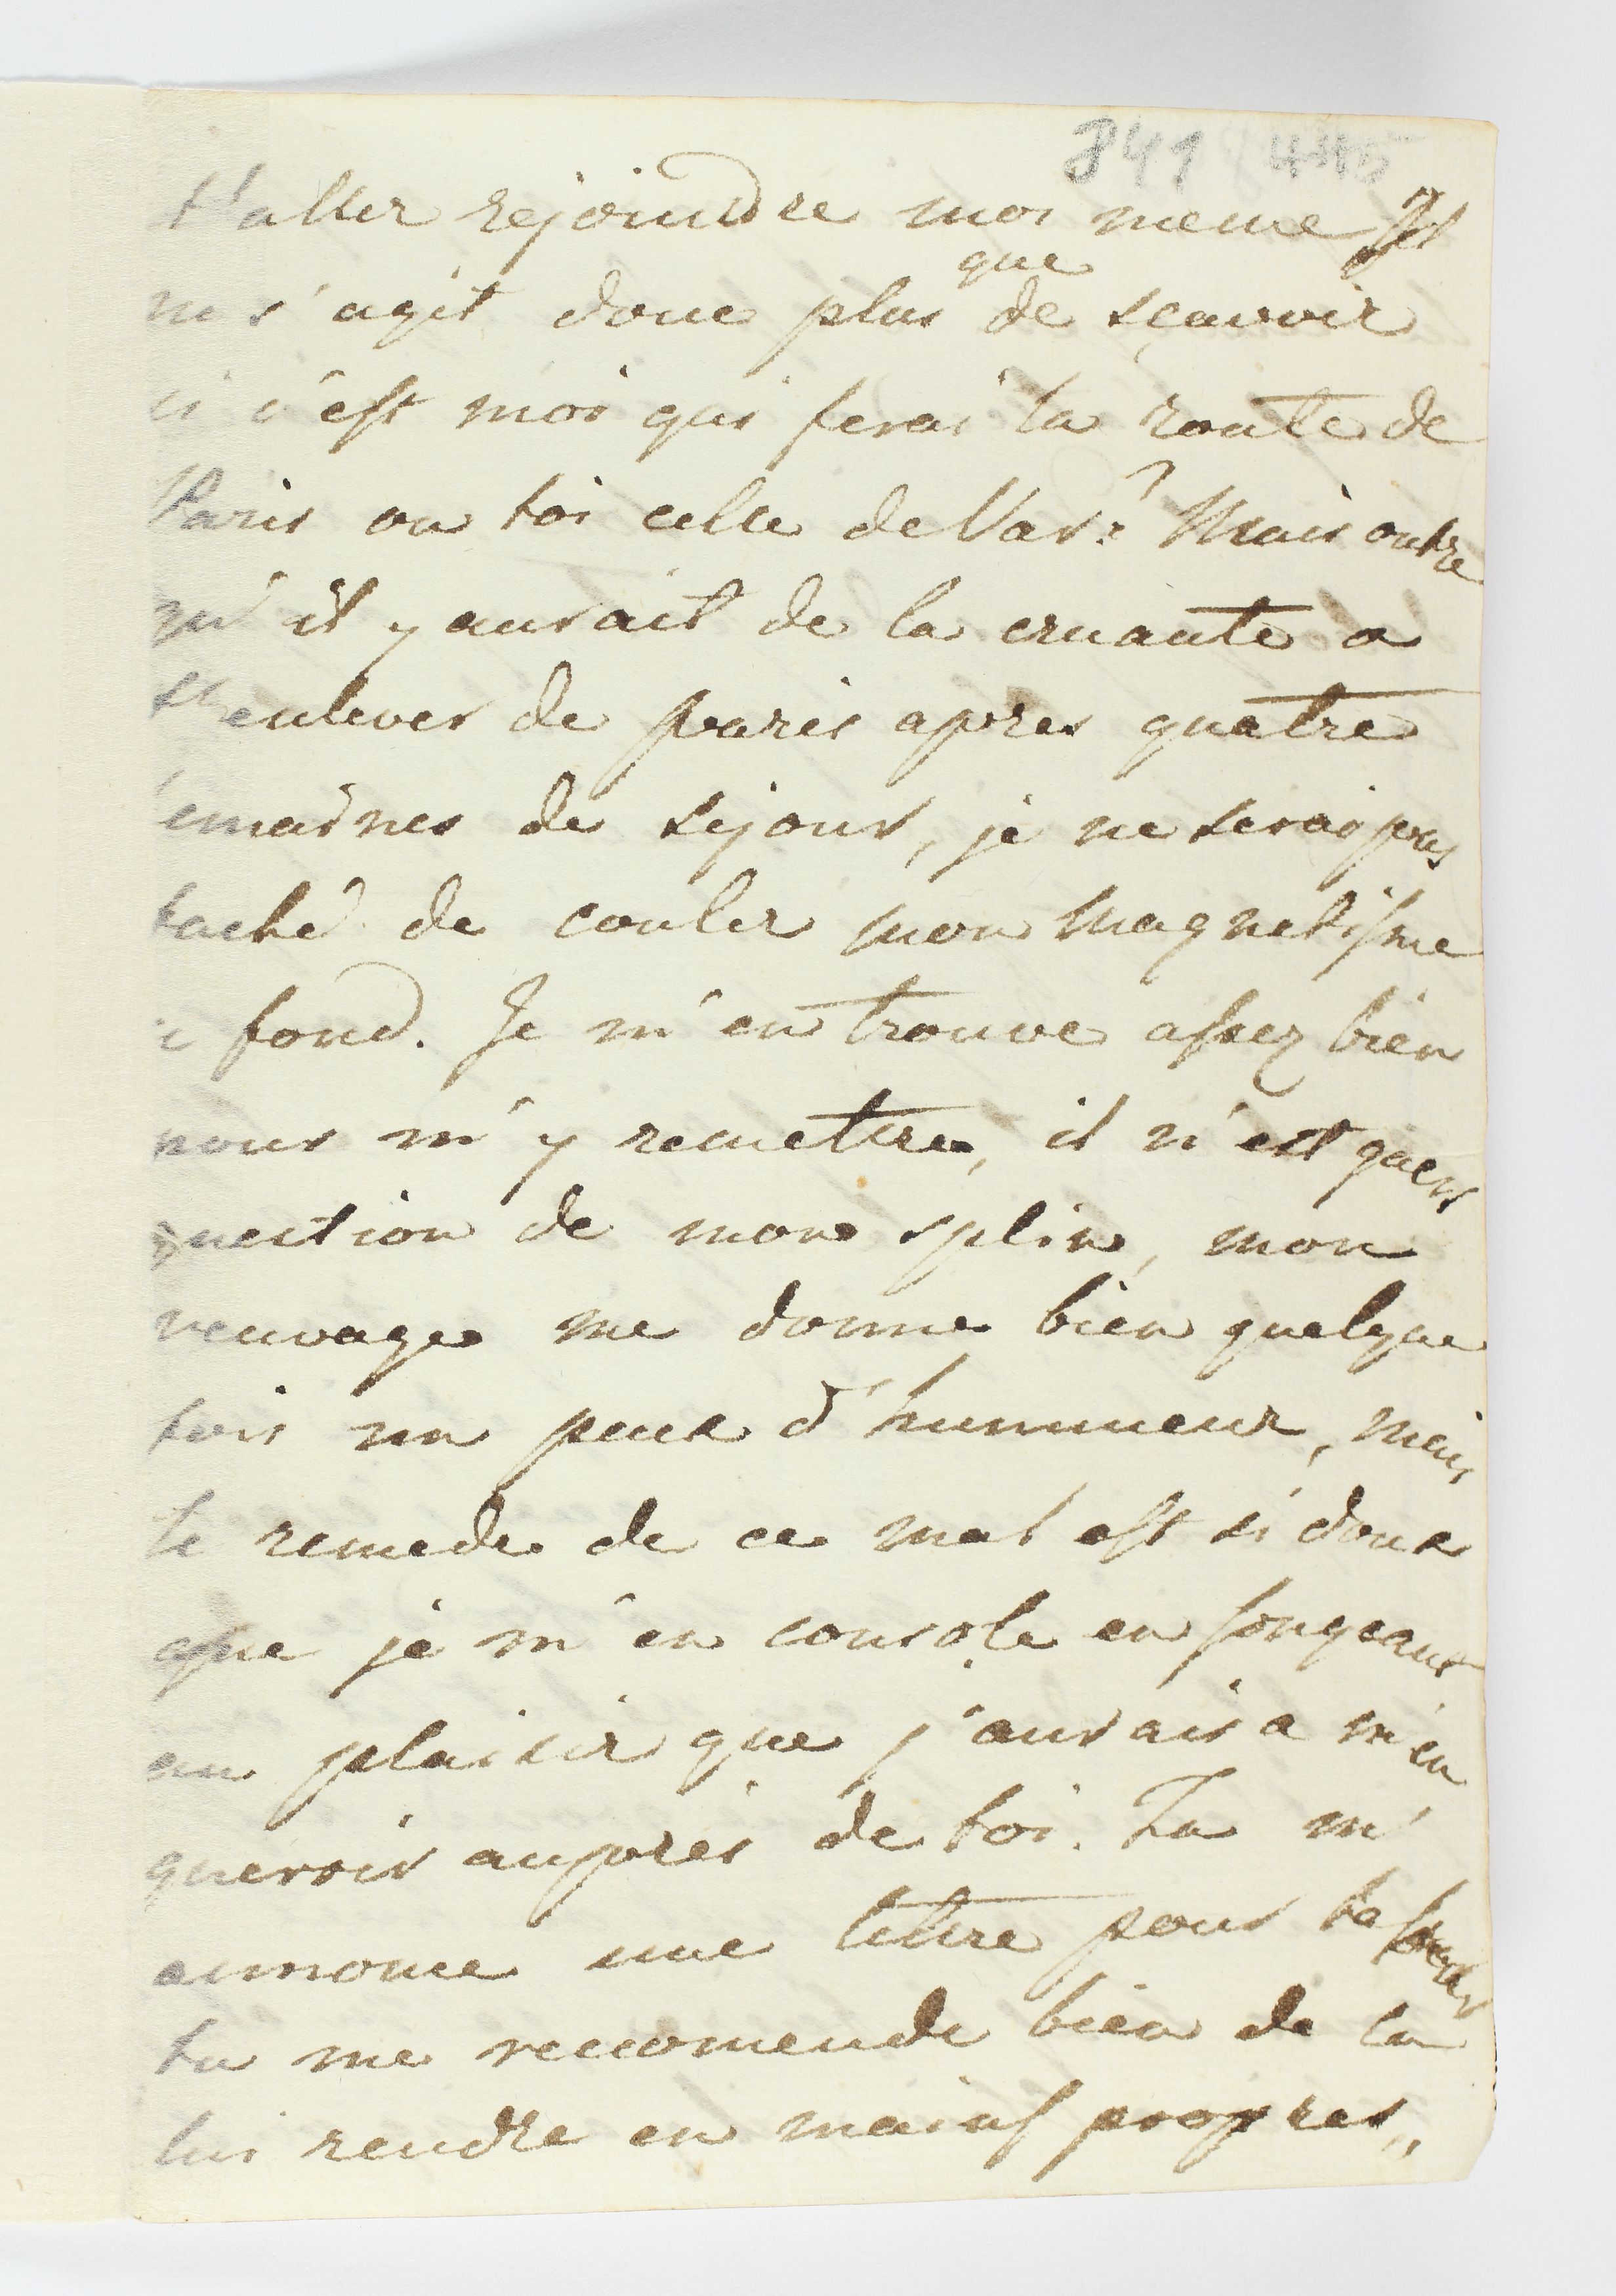 841 / 445
t'aller rejoindre moi meme Il
ne s'agit donc plus que de sçavoir
si c'est moi qui ferai la route de
Paris ou toi celle de Var? Mais outre
qu'il y aurait de la cruauté a
t'enlever de paris apres quatre
semaines de sejour, je ne serai pas
faché de couler mon magnetisme
a fond. Je m'en trouve assez bien
pour m'y remettre, il n'est guere
question de mon splin, mon
veuvage me donne bien quelque
fois un peux d'hummeur, mais
le remede de ce mal est si doux
que je m'en console en songeant
au plaisir que j'aurais a m'en
guerrir aupres de toi. Tu m'
annonce une lettre pour ta
tu me reccomende bien de la
lui rendre en mains propres,,